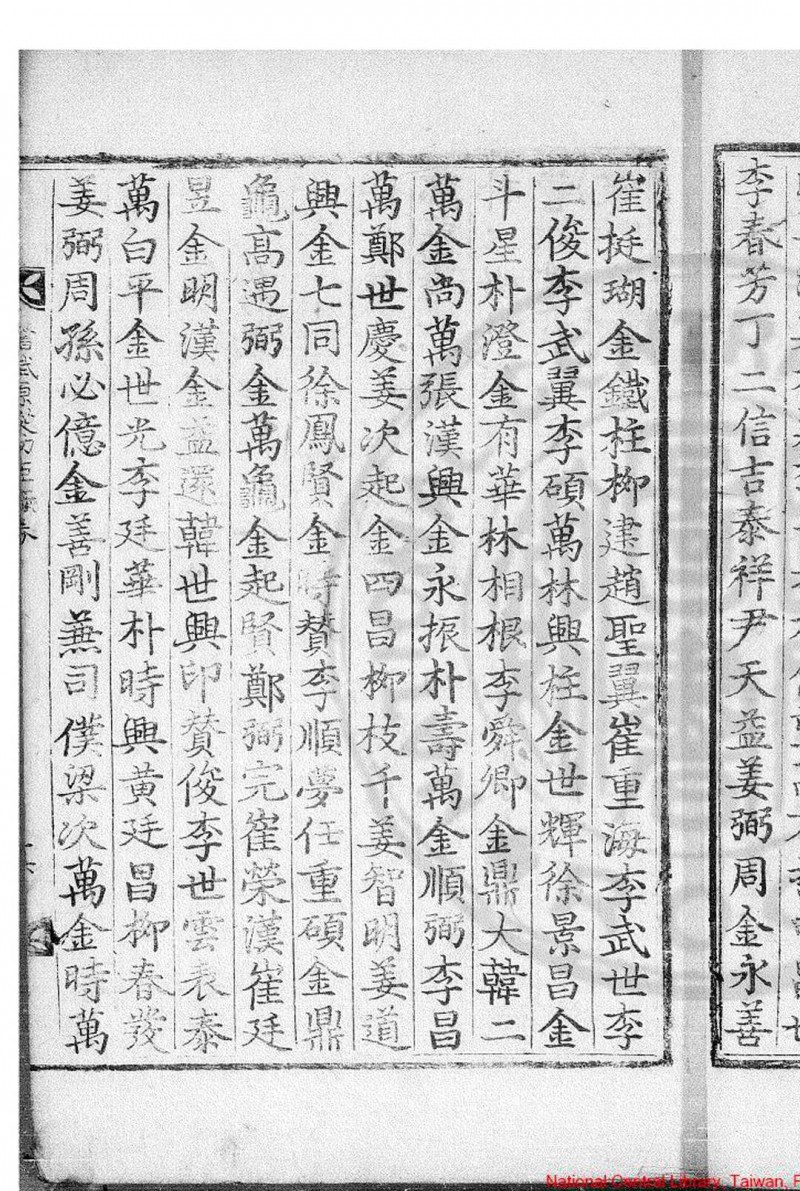 李春芳丁二信吉泰祥尹天益姜弼周金永善
崔挺瑚金鐵柱柳建趙聖翼崔重海李武世李
二俊李武翼李碩萬林興柱金世輝徐景昌金
斗星朴澄金有華林相根李舜卿金鼎大韓二
萬金尚萬張漢興金永振朴壽萬金順弼李昌
萬鄭世慶姜次起金四昌柳枝千姜智明姜道
興金七同徐鳳賢金時贊李順夢任重碩金鼎
龜高遇弼金萬龜金起賢鄭弼完崔榮漢崔廷
昱金明漢金益還韓世興印贊俊李世雲表泰
萬白平金世光李廷華朴時興黃廷昌柳春發
姜弼周孫必億金善剛兼司僕梁次萬金時萬
National Central Library, Taiwan,